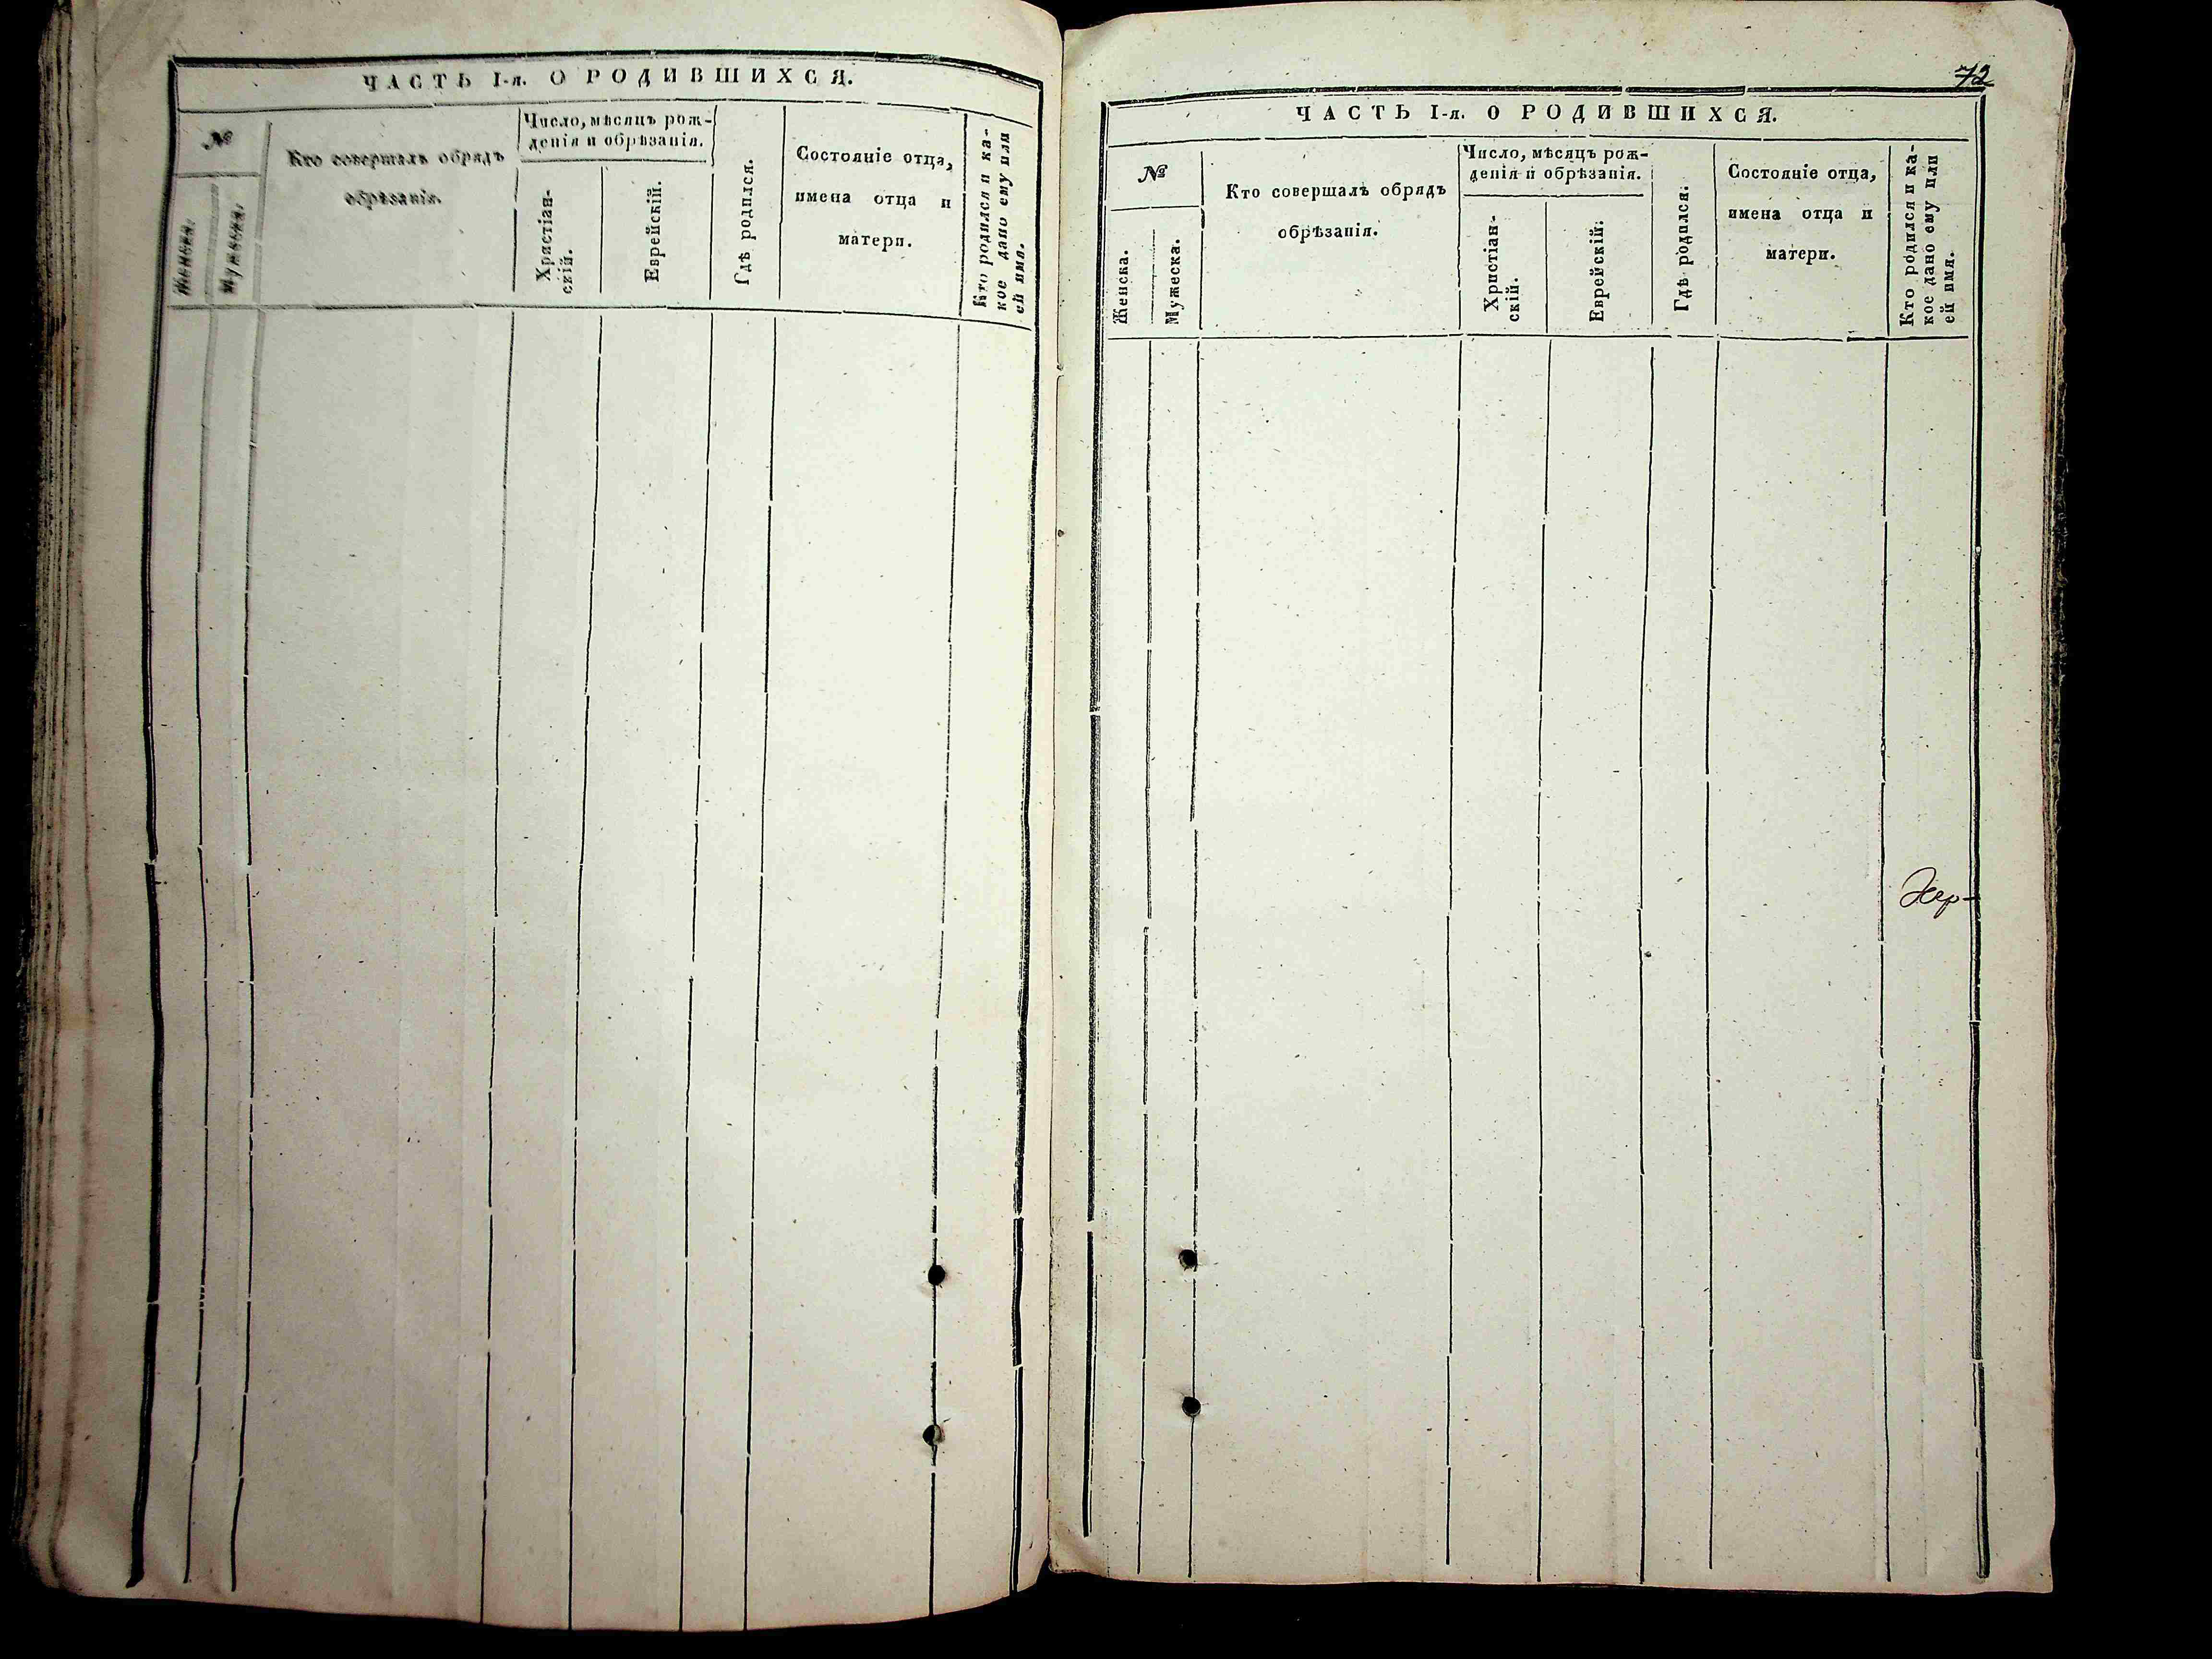 ЧАСТЬ I-я. О РОДИВШИХСЯ.
№
Женска.
Мужеска.
Кто совершалъ обрядъ
обрѣзанія.
Число, мѣсяцъ рож-
денія и обрѣзанія.
Христіан-
скій.
Еврейскій.
Гдѣ родился.
Состояніе отца,
имена отца и
матери.
Кто родился и ка-
кое дано ему или
ей имя.
72
ЧАСТЬ I-я. О РОДИВШИХСЯ.
№
Женска.
Мужеска.
Кто совершалъ обрядъ
обрѣзанія.
Число, мѣсяцъ рож-
денія и обрѣзанія.
Христіан-
скій.
Еврейскій.
Гдѣ родился.
Состояніе отца,
имена отца и
матери.
Кто родился и ка-
кое дано ему или
ей имя.
Хер-